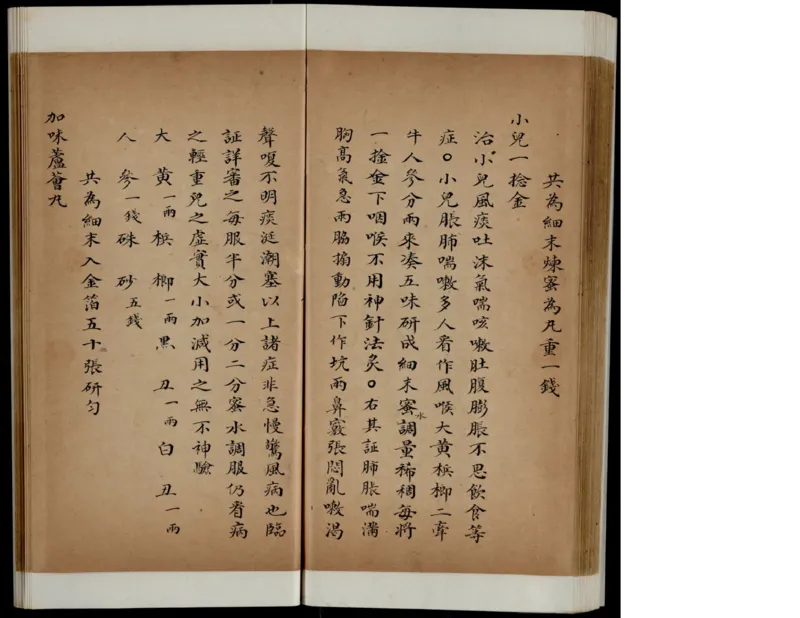 共為細末煉蜜為丸重一錢
小兒一捻金
治小兒風痰吐沫氣喘咳嗽肚腹膨脹不思飲食等
症○小兒脹肺喘嗽多人看作風喉大黃梹榔二牽
牛人參分兩來湊五味研成細末蜜水調量稀稠每將
一捻金下咽喉不用神針法炙○右其証肺脹喘滿
胸高氣急兩脇搧動陷下作坑兩鼻竅張悶亂嗽渴
聲嗄不明痰涎潮塞以上諸症非急慢驚風病也臨
証詳審之每服半分或一分二分蜜水調服仍看病
之輕重兒之虛實大小加減用之無不神驗
大黃一兩梹榔一兩黑丑一兩白丑一兩
人參一錢硃砂五錢
共為細末入金箔五十張研勻
加味蘆薈丸